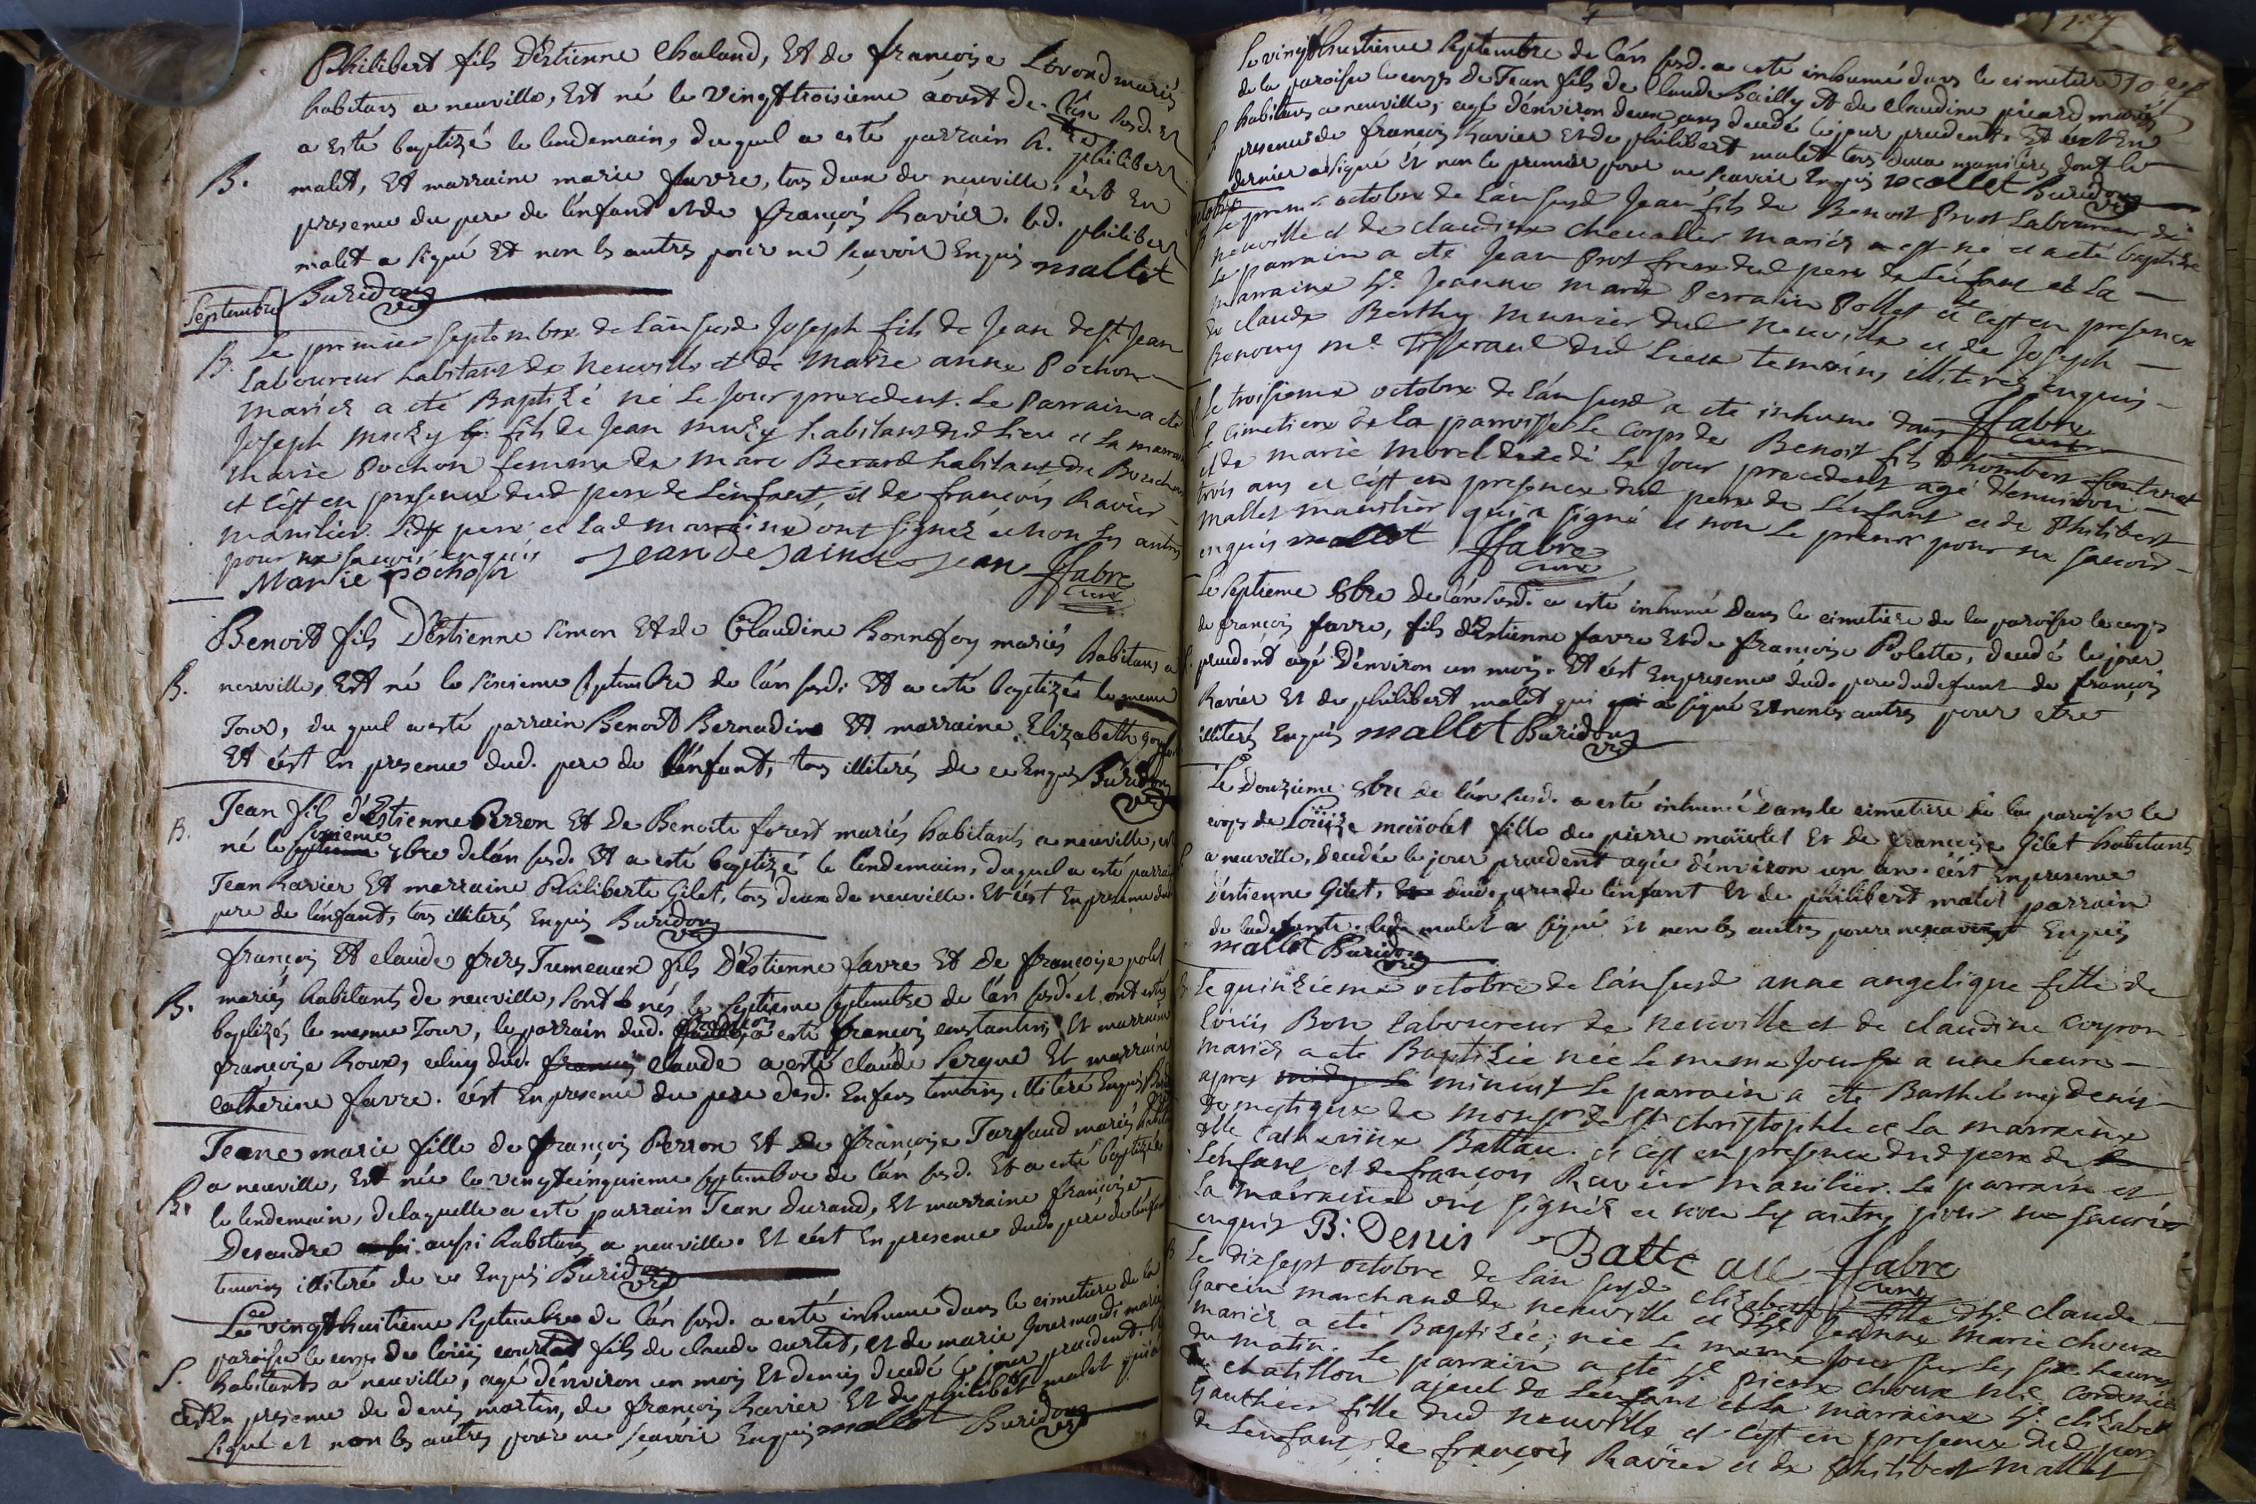 Philibert fils D'Estienne Chaland, Et de françoise Livond mariés
habitans a neuville, Est né le vingttroisieme aoust de l'an susd. Et
a esté baptizé le lendemain, duquel a esté parrain h. philibert
B. malet, Et marraine marie favre, tous deux de neuville. c'est En
presence du pere de l'enfant et de françois Ravier. led. philibert
malet a signé Et non les autres pour ne sçavoir Enquis mallet
Buridon vic
Septembre
B. Le premier septembre de l'an susd Joseph fils de Jean de st Jean
laboureur habitant de Neuville et de Marie anne Pochon
mariés a eté Baptisé né le jour precedent. Le Parrain a eté
Joseph fils de Jean habitant dud lieu et la marraine
Marie Pochon femme de Marc Berard habitant de
et c'est en presence dud pere de l'enfant, et de françois Ravier
manilier. Led pere et lad marraine ont signez et non les autres
pour ne savoir enquis Jean De Saint Jean ffabre
Marie pochon curé
Benoit fils D'Estienne simon Et de Claudine Bonnefoy mariés habitans a
B. neuville, Est né le sixieme septembre de l'an susd. Et a esté baptizé le meme
Jour, du quel a esté parrain Benoit Bernadin Et marraine Elizabeth
Et c'est En presence dud. pere de l'enfant, tous illiterés De ce Enquis Buridon vic
B. Jean fils d'Estienne Perron Et De Benoite forest mariés habitants a neuville, est
né le sixieme 7bre de l'an susd. Et a esté baptizé le lendemain, duquel a esté parrain
Jean Ravier Et marraine Philiberte Gilet, tous deux de neuville. Et c'est En presence dud.
pere de l'enfant, tous illiterés Enquis Buridon vic
françois Et claude freres Jumeaux fils D'Estienne favre Et De françoise polet
B. mariés habitants de neuville, sont nés le septieme septembre de l'an susd. et ont estés
baptizés le mesme Jour, le parrain dud. françois a esté françois constantin, Et marraine
françoise Roux, celuy dud. claude a esté claude Sergue Et marraine
Catherine favre. c'est En presence du pere desd. Enfans temoins illiteré Enquis
Jeane marie fille de françois Perron Et de françoise Tarfaud mariés
a neuville, Est née le vingtcinquieme septembre de l'an susd. Et a esté baptizée
B. le lendemain, de laquelle a esté parrain Jean Durand, Et marraine françoise
Desandre aussi habitans a neuville. Et c'est En presence dud. pere de l'enfant
temoins illiteré de ce Enquis Buridon vic
Le vingthuitieme septembre de l'an susd. a esté inhumé dans le cimetiere de la
paroisse le corps de loüis curtet fils de claude curtet, et de marie Gourmand mariés
S. habitants a neuville, agé d'environ un mois Et demis decedé le jour precedent.
c'est En presence de denis martin, de françois Ravier Et de philibet malet qui a
signé et non les autres pour ne sçavoir Enquis mallet Buridon vic
Le vingthuitieme septembre de l'an susd. a esté inhumé dans le cimetiere
de la paroisse le corps de Jean fils de Claude Bailly Et de claudine picard mariés
S. habitans a neuville, agé d'environ deux ans decedé le jour precedent. Et c'est En
presence de françois Ravier Et de philibert malet tous deux maniliers dont le
dernier a signé Et non le premier pour ne scavoir Enquis mallet Buridon vic
octobre
B. Le premier octobre de l'an susd Jean fils de Benoit Prost Laboureur de
neuville et de claudine chevallier mariés est né et a eté baptisé
Le parrain a eté Jean Prost frere dud pere de l'enfant et la
marraine he. Jeanne Marie Perrain Pollet et c'est en presence
de claude Berthy munier dud Neuville et de Joseph
me Tisserand dud Lieu temoins illiterez enquis
ffabre curé
S. Le troisieme octobre de l'an susd a eté inhumé dans
le cimetiere de la parroisse Le corps de Benoit fils d'hombert fontenet
et de marie morel decedé le jour precedent agé d'environ
trois ans et c'est en presence dud pere de l'enfant et de Philibert
Mallet manilier qui a signé et non Le premier pour ne savoir
enquis mallet ffabre curé
Le septieme 8bre de l'an susd. a esté inhumé Dans le cimetiere de la paroisse le corps
de françois favre, fils d'Estienne favre Et de françoise Polette, decedé le jour
S. precedent agé d'environ un mois. Et c'est En presence dud. pere du defunt de françois
Ravier Et de philibert malet qui a signé Et non les autres pour etre
illiterés Enquis mallet Buridon vic
Le Douzieme 8bre de l'an susd. a esté inhumée Dans le cimetiere de la paroisse le
corps de Loüize maïolet fille de pierre maïolet Et de françoise Gilet habitants
S. a neuville, Decedée le jour precedent agée d'environ un an. c'est En presence
D'estienne Gilet, dud. pere de l'enfant Et de philibert malet parrain
de lad. defunte. led. malet a signé Et non les autres pour ne scavoir Enquis
mallet Buridon vic
B. Le quinzieme octobre de l'an susd anne angelique fille de
loüis Bon laboureur de neuville et de claudine coyron
mariés a eté Baptisée née le meme jour a une heure
apres minuit Le parrain a eté Barthelemy denis
domestique de monsr de st christophle et La marraine
dlle Catherine Battau. et c'est en presence dud pere de
l'enfant et de françois Ravier manilier. Le parrain et
la marraine ont signés et non les autres pour ne savoir
enquis B: Denis Batteau ffabre curé
B. Le dixsept octobre de l'an susd elizabeth fille d'hr. claude
Garcin marchand de neuville et d'he Jeanne Marie choux
mariés a eté Baptisée, née Le meme jour sur les six heures
du matin. Le parrain a eté sr pierre choux me cordonnier
de chatillon ajeul de l'enfant et la marraine he. elizabeth
Gauthier fille dud neuville et c'est en presence dud pere
de l'enfant, de françois Ravier et de Philibert Mallet